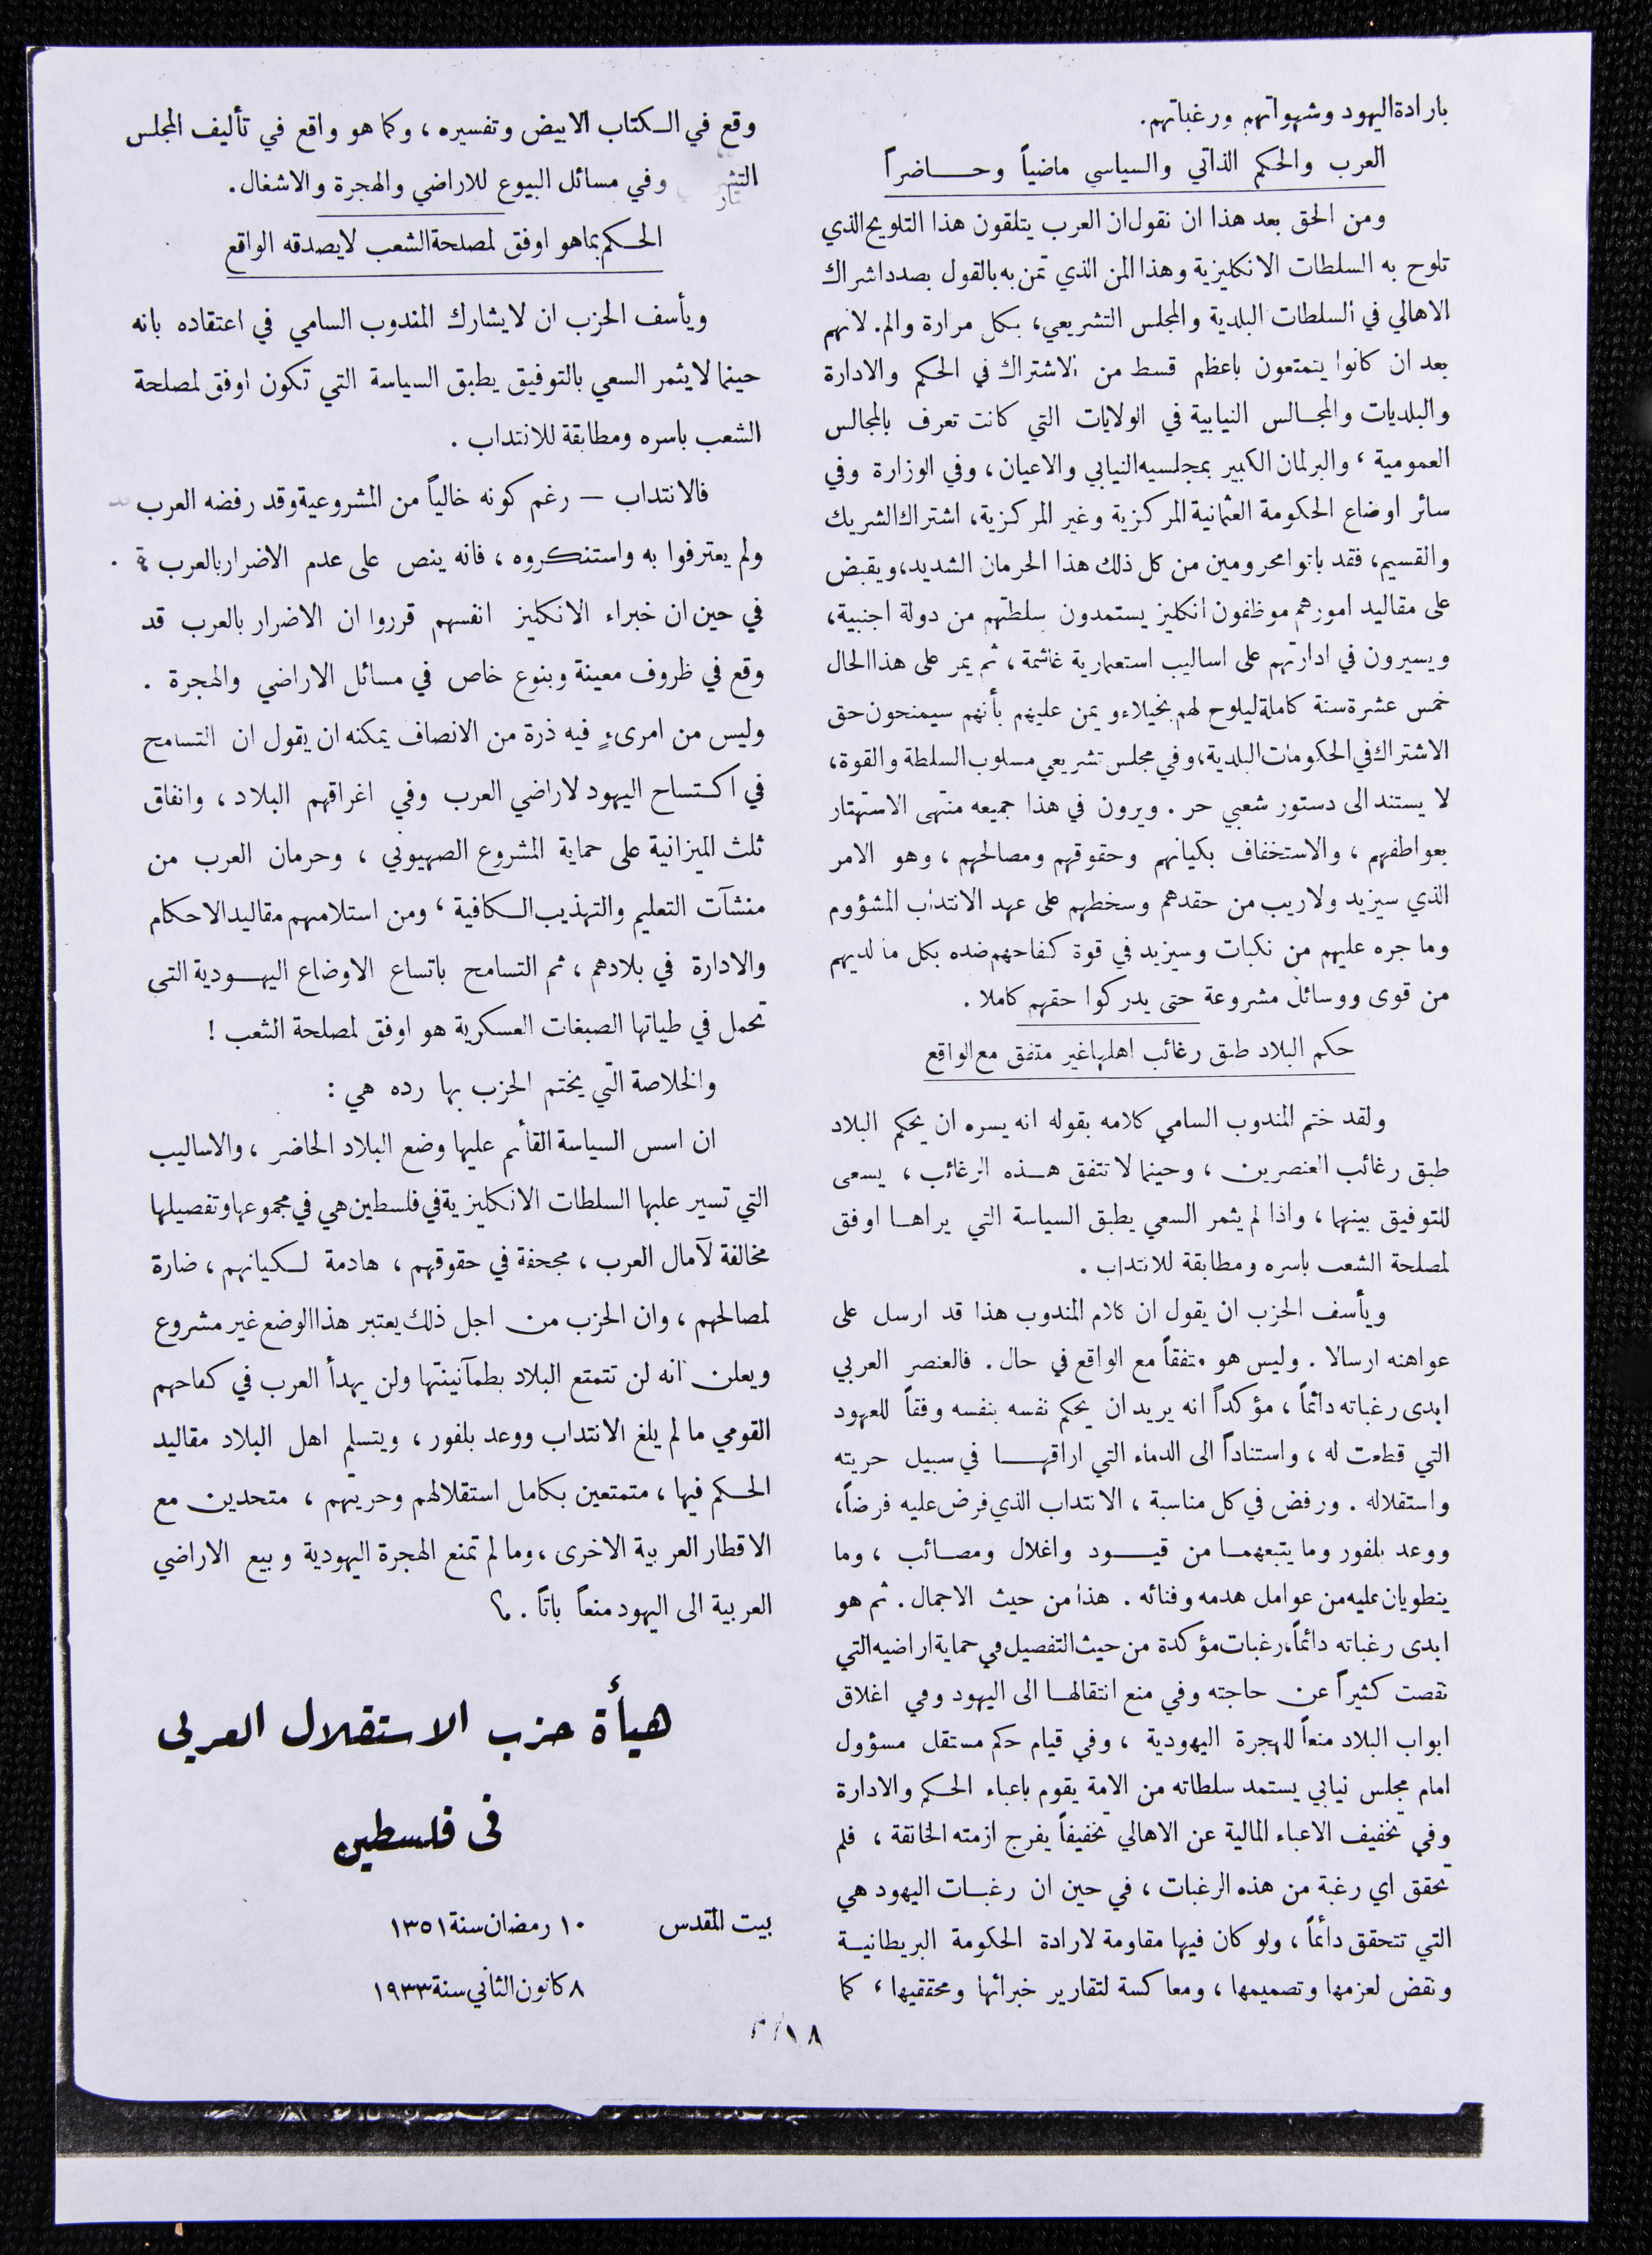 بارادة اليهود وشهواتهم ورغباتهم.
العرب والحكم الذاتي والسياسي ماضياً وحــــاضراً
ومن الحق بعد هذا ان نقول ان العرب يتلقون هذا التلويح الذي
تلوح به السلطات الانكليزية وهذا المن الذي تمن به بالقول بصدد اشراك
الاهالي في السلطات البلدية والمجلس التشريعي، بكل مرارة والم. لانهم
بعد ان كانوا يتمتعون باعظم قسط من الاشتراك في الحكم والادارة
والبلديات والمجالس النيابية في الولايات التي كانت تعرف بالمجالس
العمومية، والبرلمان الكبير بمجلسيه النيابي والاعيان، وفي الوزارة وفي
سائر اوضاع الحكومة العثمانية المركزية وغير المركزية، اشتراك الشريك
والقسيم، فقد باتوا محرومين من كل ذلك هذا الحرمان الشديد، ويقبض
على مقاليد امورهم موظفون انكليز يستمدون سلطتهم من دولة اجنبية،
ويسيرون في ادارتهم على اساليب استعمارية غاشمة، ثم يمر على هذا الحال
خمس عشرة سنة كاملة ليلوح لهم بخيلاء ويمن عليهم بأنهم سيمنحون حق
الاشتراك في الحكومات البلدية، وفي مجلس تشريعي مسلوب السلطة والقوة،
لا يستند الى دستور شعبي حر. ويرون في هذا جميعه منتهى الاستهتار
بعواطفهم، والاستخفاف بكيانهم وحقوقهم ومصالحهم، وهو الامر
الذي سيزيد ولا ريب من حقدهم وسخطهم على عهد الانتداب المشؤوم
وما جره عليهم من نكبات وسيزيد في قوة كفاحهم ضده بكل ما لديهم
من قوى ووسائل مشروعة حتى يدركوا حقهم كاملا.
حكم البلاد طبق رغائب اهليها غير متفق مع الواقع
ولقد ختم المندوب السامي كلامه بقوله انه يسره ان يحكم البلاد
طبق رغائب العنصرين، وحينما لا تتفق هــذه الرغائب، يسعى
للتوفيق بينهما، واذا لم يثمر السعي يطبق السياسة التي يراها اوفق
لمصلحة الشعب باسره ومطابقة للانتداب.
ويأسف الحزب ان يقول ان كلام المندوب هذا قد ارسل على
عواهنه ارسالا. وليس هو متفقاً مع الواقع في حال. فالعنصر العربي
ابدى رغباته دائماً، مؤكداً انه يريد ان يحكم نفسه بنفسه وفقاً للعهود
التي قطعت له، واستناداً الى الدماء التي اراقهــا في سبيل حريته
واستقلاله. ورفض في كل مناسبة، الانتداب الذي فرض عليه فرضاً،
ووعد بلفور وما يتبعهما من قيــود واغلال ومصائب، وما
ينطويان عليه من عوامل هدمه وفنائه. هذا من حيث الاجمال. ثم هو
ابدى رغباته دائماً، رغبات مؤكدة من حيث التفصيل في حماية اراضيه التي
نقصت كثيراً عن حاجته وفي منع انتقالها الى اليهود وفي اغلاق
ابواب البلاد منعاً للهجرة اليهودية، وفي قيام حكم مستقل مسؤول
امام مجلس نيابي يستمد سلطاته من الامة يقوم باعباء الحكم والادارة
وفي تخفيف الاعباء المالية عن الاهالي تخفيفاً يفرج ازمته الخانقة، فلم
تحقق اي رغبة من هذه الرغبات، في حين ان رغبات اليهود هي
التي تتحقق دائماً، ولو كان فيها مقاومة لارادة الحكومة البريطانية
ونقض لعزمها وتصميمها، ومعاكسة لتقارير خبرائها ومحققيها، كما
وقع في الكتاب الابيض وتفسيره، وكما هو واقع في تأليف المجلس
وفي مسائل البيوع للاراضي والهجرة والاشغال.
الحكم بما هو اوفق لمصلحة الشعب لا يصدقه الواقع
ويأسف الحزب ان لا يشارك المندوب السامي في اعتقاده بانه
حينما لا يثمر السعي بالتوفيق يطبق السياسة التي تكون اوفق لمصلحة
الشعب باسره ومطابقة للانتداب.
فالانتداب — رغم كونه خالياً من المشروعية وقد رفضه العرب
ولم يعترفوا به واستنكروه، فانه ينص على عدم الاضرار بالعرب
في حين ان خبراء الانكليز انفسهم قرروا ان الاضرار بالعرب قد
وقع في ظروف معينة وبنوع خاص في مسائل الاراضي والهجرة.
وليس من امرىءٍ فيه ذرة من الانصاف يمكنه ان يقول ان التسامح
في اكتساح اليهود لاراضي العرب وفي اغراقهم البلاد، وانفاق
ثلث الميزانية على حماية المشروع الصهيوني، وحرمان العرب من
منشآت التعليم والتهذيب الكافية، ومن استلامهم مقاليد الاحكام
والادارة في بلادهم، ثم التسامح باتساع الاوضاع اليهــودية التي
تحمل في طياتها الصبغات العسكرية هو اوفق لمصلحة الشعب!
والخلاصة التي يختم الحزب بها رده هي:
ان اسس السياسة القائم عليها وضع البلاد الحاضر، والاساليب
التي تسير عليها السلطات الانكليزية في فلسطين هي في مجموعها وتفصيلها
مخالفة لآمال العرب، مجحفة في حقوقهم، هادمة لكيانهم، ضارة
لمصالحهم، وان الحزب من اجل ذلك يعتبر هذا الوضع غير مشروع
ويعلن انه لن تتمتع البلاد بطمآنينتها ولن يهدأ العرب في كفاحهم
القومي ما لم يلغ الانتداب ووعد بلفور، ويتسلم اهل البلاد مقاليد
الحكم فيها، متمتعين بكامل استقلالهم وحريتهم، متحدين مع
الاقطار العربية الاخرى، وما لم تمنع الهجرة اليهودية وبيع الاراضي
العربية الى اليهود منعاً باتاً.
هيأة حزب الاستقلال العربي
في فلسطين
بيت المقدس ١٠ رمضان سنة ١٣٥١
٨ كانون الثاني سنة ١٩٣٣